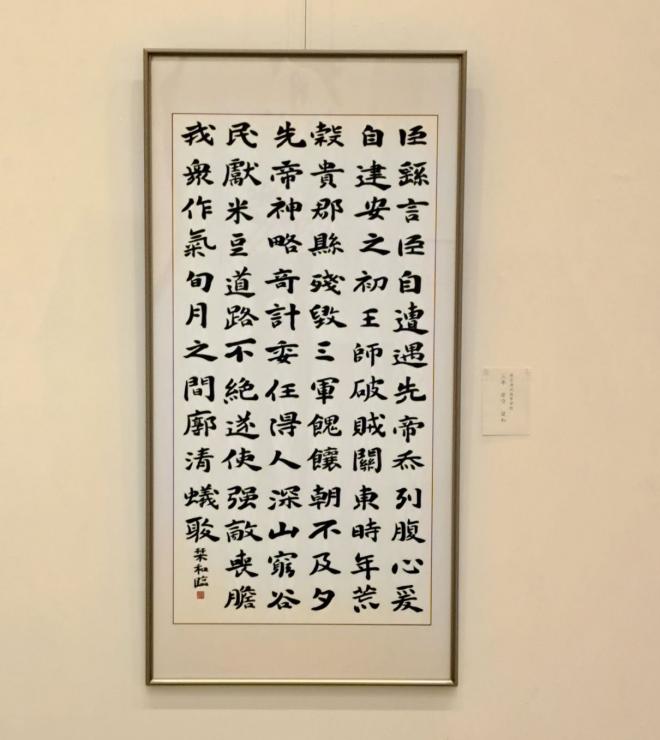 臣繇言臣自遭遇先帝忝列腹心爰
自建安之初王師破賊關東時年荒
穀貴郡縣殘毀三軍餽饟朝不及夕
先帝神略奇計委任得人深山窮谷
民獻米豆道路不絶遂使强敵喪膽
我衆作氣旬月之間廓清蟻聚
和臨